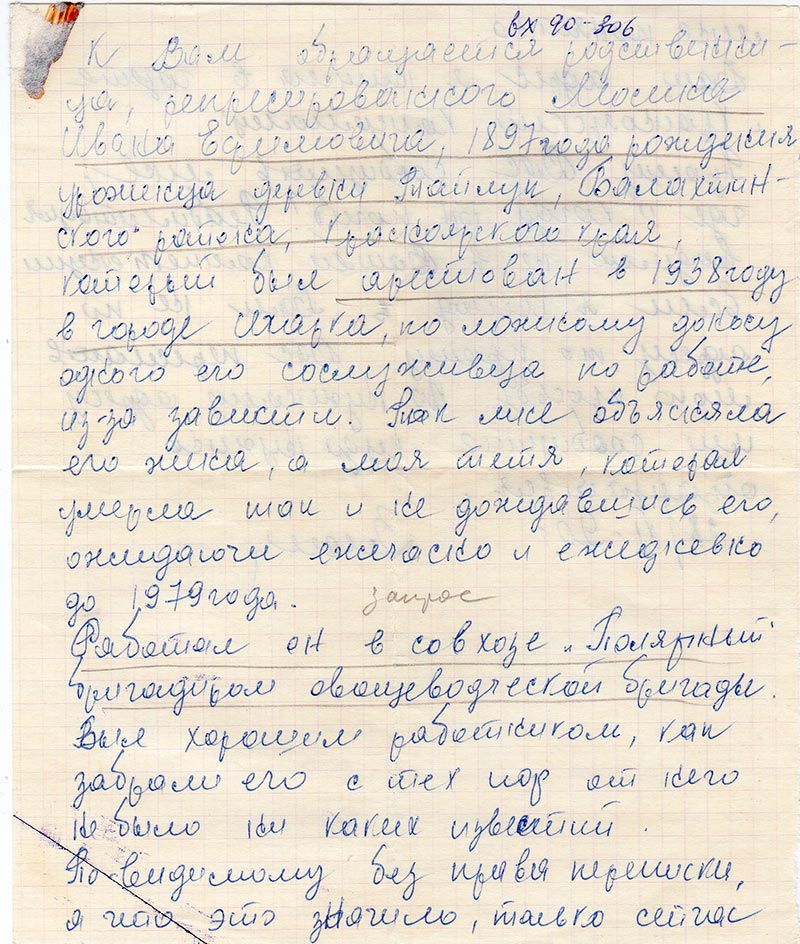 вх 90-306
К Вам обращается родственни-
ца, репресированного Мосина
Ивана Ефимовича, 1897 года рождения
урожинца деревни Тайлук, Балахтин-
ского района, Красноярского края,
который был арестован в 1938 году
в городе Игарка, по ложному доносу
одного его сослуживца по работе,
из-за зависти. Так мне объясняла
его жина, а моя тетя, которая
умерла так и не дождавшись его,
ожидаючи ежечасно и ежедневно
до 1979 года. запрос
Работал он в совхозе „Полярный"
бригадиром овощеводческой бригады.
Был хорошим работником, как
забрали его с тех пор от него
не было ни каких известий.
По-видимому без права переписки,
а что это значило, только сейчас